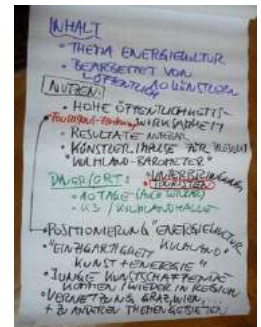 INHALT
• THEMA ENERGIEKULTUR
• BEARBEITET VON
ÖFFENTLICH 10 KÜNSTLERN
NUTZEN:
• HOHE ÖFFENTLICHKEITS-
WIRKSAMKEIT
• RESULTATE NUTZBAR
• KÜNSTLER. IMPULSE FÜR
"KULMLAND-BAROMETER"
DAUER/ORT:
• UNTERBRINGUNG
TOURISTEN
• 10 TAGE
• KS / KULMLANDHALLE
• POSITIONIERUNG "ENERGIEKULTUR
KULMLAND"
• "EINZIGARTIGKEIT
KUNST + ENERGIE"
• JUNGE KUNSTSCHAFFENDE
KOMMEN (WIEDER) IN REGION
• VERNETZUNG GRAZ, WIEN, ...
+ ZU ANDEREN THEMENGEBIETEN